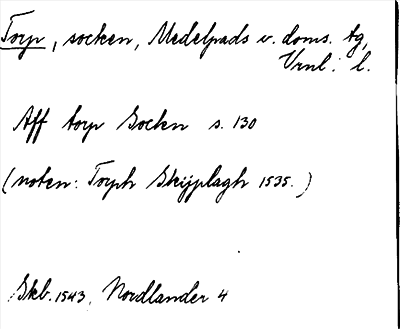 Torp, socken, Medelpads v. doms. tg,
Vrnl. l.
Aff torp Sockn s. 130
(noten: Torph Skijplagh 1535.)
Skb. 1543, Nordlander 4